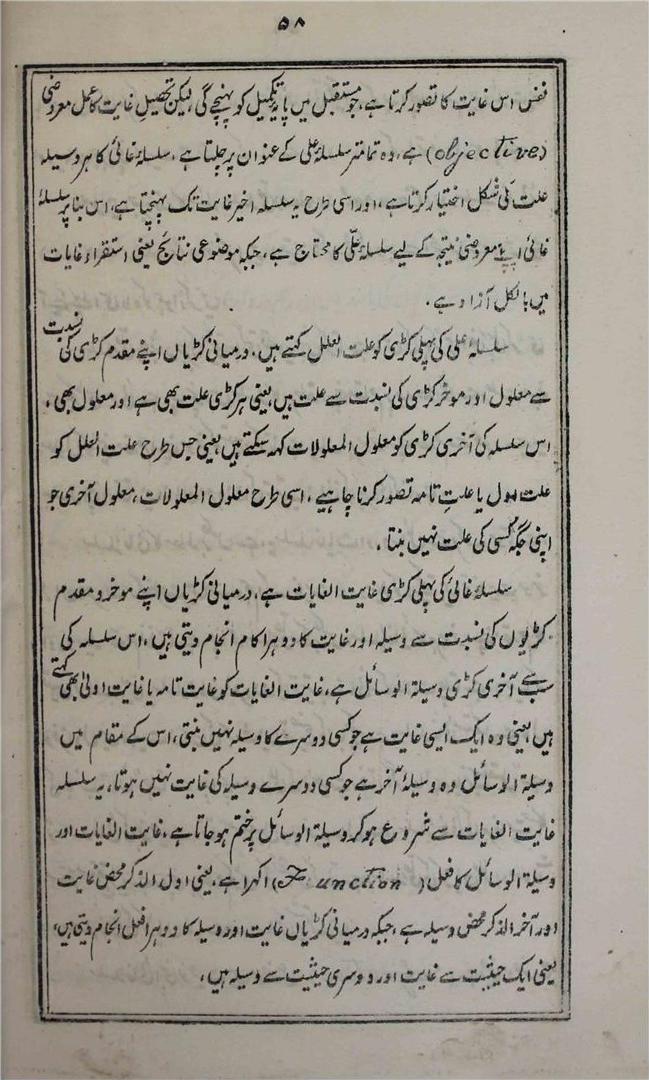 ۵۸
نفس اس غایت کا تصور کرتا ہے، جو مستقبل میں پایۂ تکمیل کو پہنچے گی، لیکن تحصیلِ غایت کا عمل معروضی
(objective) ہے، وہ تمامتر سلسلۂ علی کے عنوان پر چلتا ہے، سلسلۂ غائی کا ہر وسیلہ
علت کی شکل اختیار کرتا ہے، اور اسی طرح یہ سلسلہ اخیر غایت تک پہنچتا ہے، اس بنا پر سلسلۂ
غائی اپنے معروضی نتیجہ کے لیے سلسلۂ علّی کا محتاج ہے، جبکہ موضوعی نتائج یعنی استقراء غایات
میں بالکل آزاد ہے،
سلسلۂ علی کی پہلی کڑی کو علت العلل کہتے ہیں، درمیانی کڑیاں اپنے مقدم کڑی کی نسبت
سے معلول اور موخر کڑی کی نسبت سے علت ہیں، یعنی ہر کڑی علت بھی ہے اور معلول بھی،
اس سلسلہ کی آخری کڑی کو معلول المعلولات کہہ سکتے ہیں، یعنی جس طرح علت العلل کو
علت اول یا علتِ تامہ تصور کرنا چاہیے، اسی طرح معلول المعلولات، معلول آخری جو
اپنی جگہ کسی کی علت نہیں بنتا،
سلسلۂ غائی کی پہلی کڑی غایت الغایات ہے، درمیانی کڑیاں اپنے موخر و مقدم
کڑیوں کی نسبت سے وسیلہ اور غایت کا دوہرا کام انجام دیتی ہیں، اس سلسلہ کی
سب سے آخری کڑی وسیلۃ الوسائل ہے، غایت الغایات کو غایت تامہ یا غایت اولیٰ بھی کہتے
ہیں، یعنی وہ ایک ایسی غایت ہے جو کسی دوسرے کا وسیلہ نہیں بنتی، اس کے مقام میں
وسیلۃ الوسائل وہ وسیلۂ آخر ہے جو کسی دوسرے وسیلہ کی غایت نہیں ہوتا، یہ سلسلہ
غایت الغایات سے شروع ہو کر وسیلۃ الوسائل پر ختم ہو جاتا ہے، غایت الغایات اور
وسیلۃ الوسائل کا فعل (Function) اکہرا ہے، یعنی اول الذکر محض غایت
اور آخر الذکر محض وسیلہ ہے، جبکہ درمیانی کڑیاں غایت اور وسیلہ کا دوہرا فعل انجام دیتی ہیں،
یعنی ایک حیثیت سے غایت اور دوسری حیثیت سے وسیلہ ہیں،